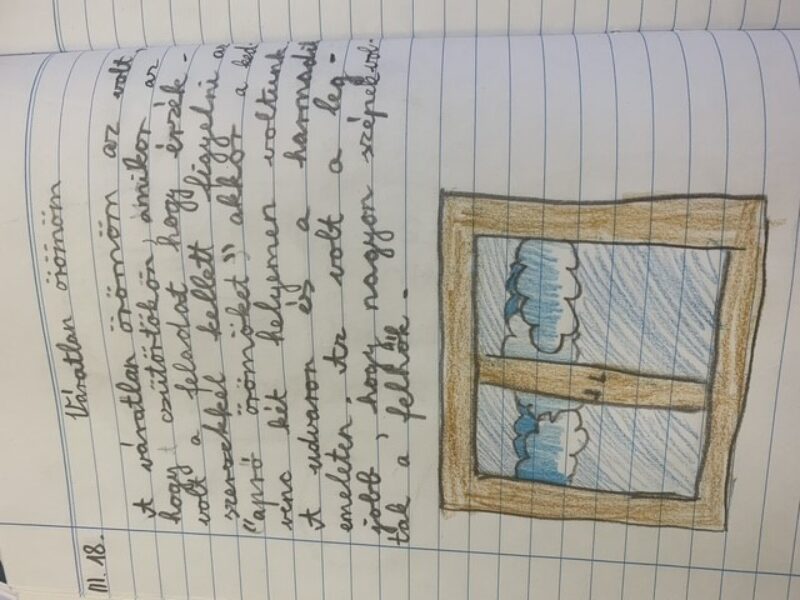 III. 18.
Váratlan örömöm
A váratlan örömöm az volt,
hogy csütörtökön, amikor az
volt a feladat hogy érzék-
szervekkel kellett figyelni az
"apró örömöket", akkor a ked-
venc két helyemen voltunk.
A udvaron és a harmadik
emeleten. Az volt a leg-
jobb, hogy nagyon szépek vol-
tak a felhők.